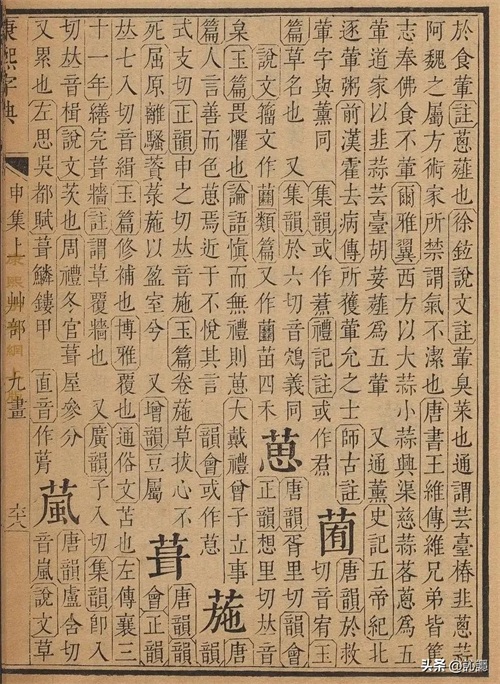 於食葷註蔥薤也徐鉉說文註葷臭菜也通謂芸薹椿韭蔥蒜
阿魏之屬方術家所禁謂氣不潔也唐書王維傳維兄弟皆篤
志奉佛食不葷爾雅翼西方以大蒜小蒜興渠慈蒜茖蔥爲五
葷道家以韭蒜芸薹胡荽薤爲五葷 又通薰史記五帝紀北
逐葷粥前漢霍去病傳所獲葷允之士師古註 唐韻於救
葷字與薰同 集韻或作禮記註或作焄 切音宥玉
篇草名也 又集韻于六切音鴪義同 唐韻胥里切集韻韻會
說文籀文作類篇又作苗四禾 葸 正韻想里切𠀤音
枲玉篇畏懼也論語慎而無禮則葸大戴禮曾子立事
篇人言善而色葸焉近于不悅其言 韻會或作諰 葹
式支切正韻申之切𠀤音施玉篇卷葹草拔心不 唐韻
死屈原離騷薋菉葹以盈室兮 又增韻豆屬 葺 會正韻
𠀤七入切音緝玉篇修補也博雅覆也通俗文苫也左傳襄三
十一年繕完葺牆註謂草覆牆也 又廣韻子入切集韻卽入
切𠀤音楫說文茨也周禮冬官葺屋參分 唐韻盧含切
又累也左思吳都賦葺鱗鏤甲 直音作 葻 音嵐說文草
康熙字典 申集上 艸部 九畫
头条